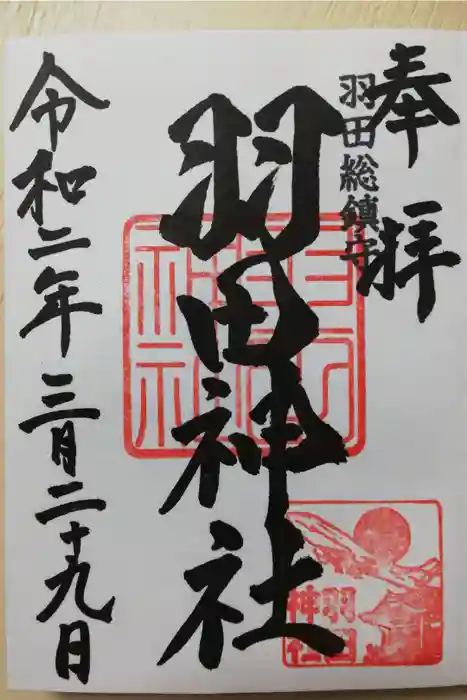 奉拝
羽田総鎮守
羽田神社
令和二年三月二十九日
羽田神社
羽田
神社